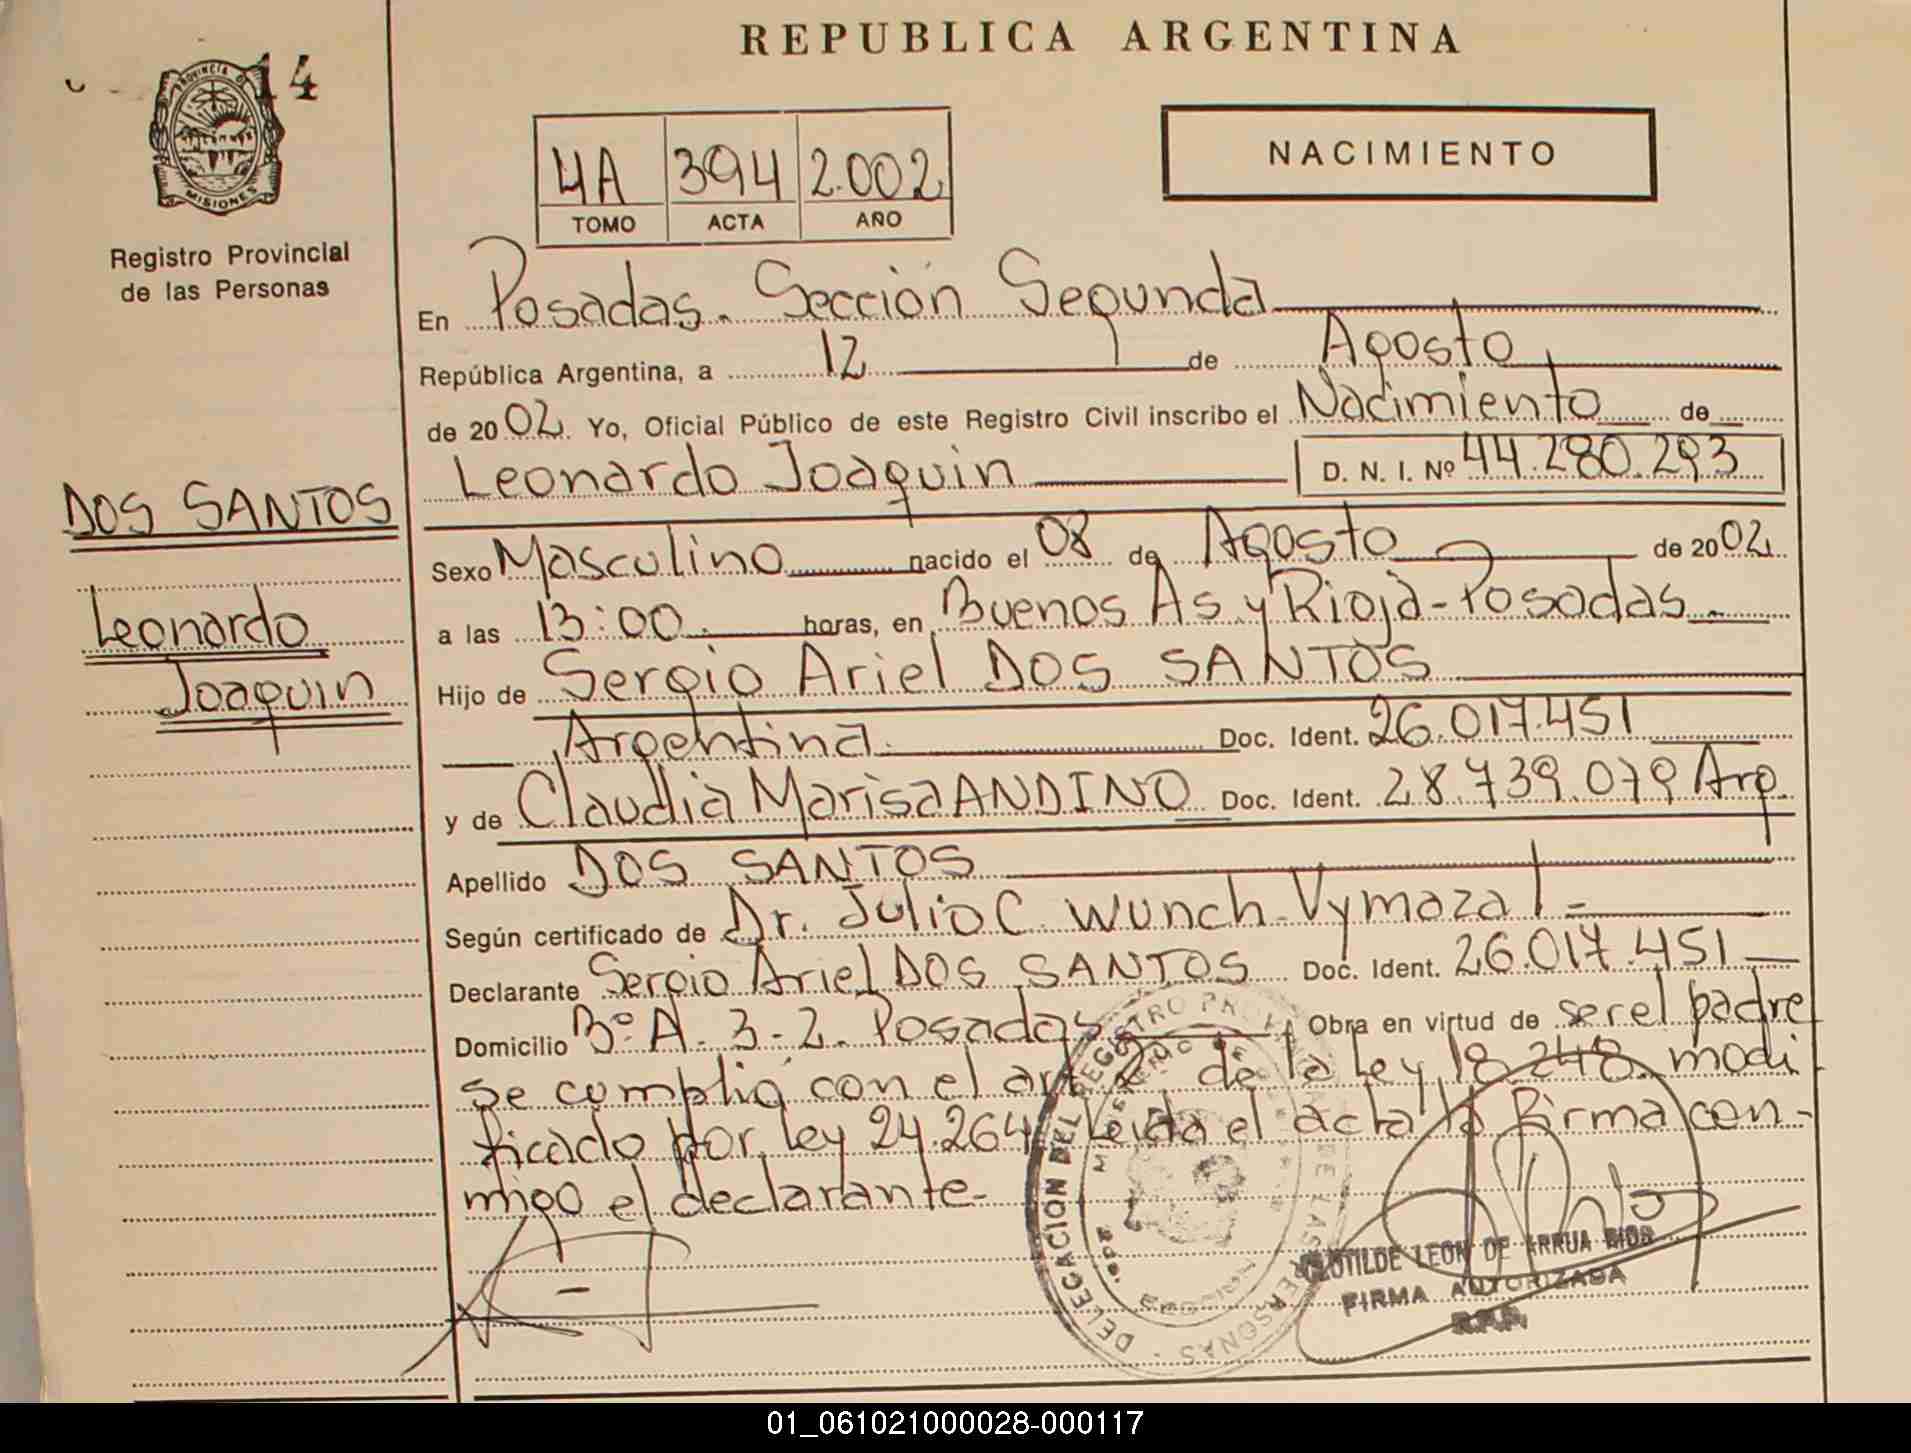 REPUBLICA ARGENTINA
14
PROVINCIA DE
MISIONES
Registro Provincial
de las Personas
4A 394 2.002
TOMO ACTA AÑO
NACIMIENTO
En Posadas. Sección Segunda
República Argentina, a 12 de Agosto
de 2002. Yo, Oficial Público de este Registro Civil inscribo el Nacimiento de
Leonardo Joaquin D. N. I. Nº 44.280.293
DOS SANTOS
Leonardo
Joaquin
Sexo Masculino nacido el 08 de Agosto de 2002
a las 13:00 horas, en Buenos As. y Rioja-Posadas.-
Hijo de Sergio Ariel DOS SANTOS
Argentina. Doc. Ident. 26.017.451
y de Claudia Marisa ANDINO Doc. Ident. 28.739.079 Arg.
Apellido DOS SANTOS
Según certificado de Dr. Julio C. Wunch-Vymazal-
Declarante Sergio Ariel DOS SANTOS Doc. Ident. 26.017.451
Domicilio Bº A. 3-2. Posadas Obra en virtud de ser el padre
se cumplió con el art. 2 de la Ley 18.248 modi
ficado por ley 24.264 Leida el acta la firma con-
migo el declarante-
DELEGACION DEL REGISTRO PROV DE LAS PERSONAS
CLOTILDE LEON DE ARRUA RIOS
FIRMA AUTORIZADA
R.P.P.
01_061021000028-000117